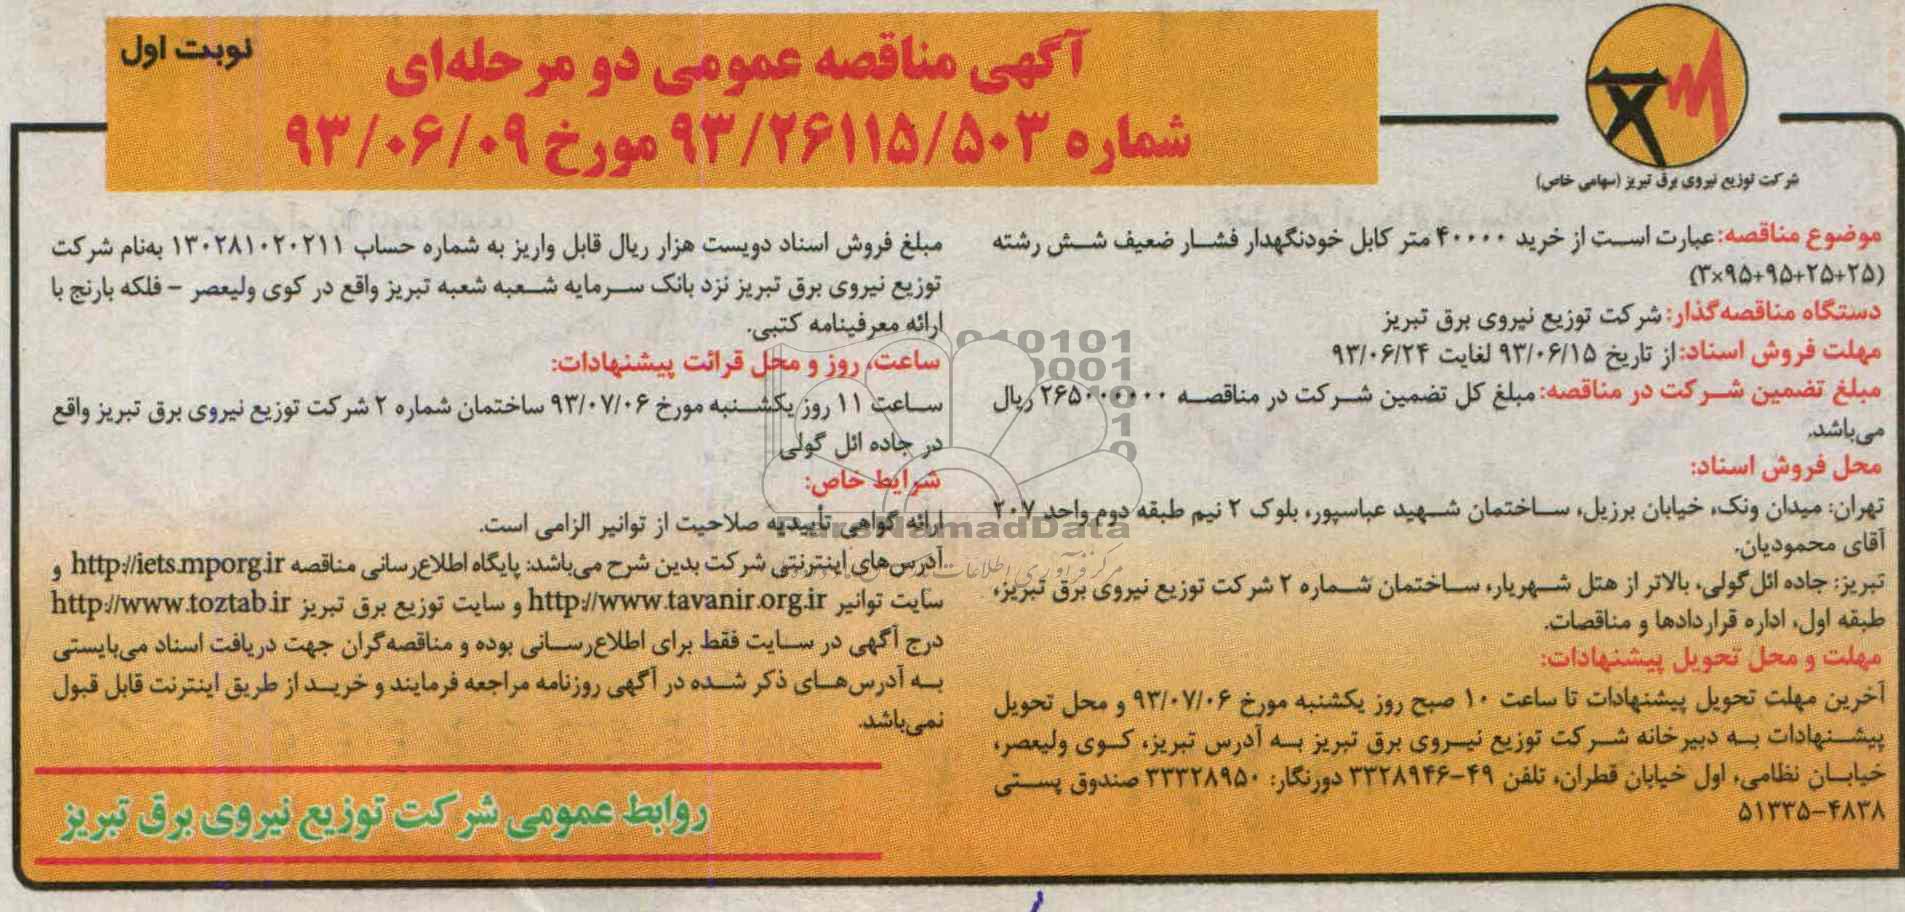 نوبت اول
آگهی مناقصه عمومی دو مرحله‌ای
شماره ۹۳/۲۶۱۱۵/۵۰۳ مورخ ۹۳/۰۶/۰۹
شرکت توزیع نیروی برق تبریز (سهامی خاص)
موضوع مناقصه: عبارت است از خرید ۴۰۰۰۰ متر کابل خودنگهدار فشار ضعیف شش رشته
(۳×۹۵+۹۵+۲۵+۲۵)
دستگاه مناقصه‌گذار: شرکت توزیع نیروی برق تبریز
مهلت فروش اسناد: از تاریخ ۹۳/۰۶/۱۵ لغایت ۹۳/۰۶/۲۴
مبلغ تضمین شرکت در مناقصه: مبلغ کل تضمین شرکت در مناقصه ۲۶۵۰۰۰۰۰۰ ریال
می‌باشد.
محل فروش اسناد:
تهران: میدان ونک، خیابان برزیل، ساختمان شهید عباسپور، بلوک ۲ نیم طبقه دوم واحد ۲۰۷
آقای محمودیان.
تبریز: جاده ائل‌گولی، بالاتر از هتل شهریار، ساختمان شماره ۲ شرکت توزیع نیروی برق تبریز،
طبقه اول، اداره قراردادها و مناقصات.
مهلت و محل تحویل پیشنهادات:
آخرین مهلت تحویل پیشنهادات تا ساعت ۱۰ صبح روز یکشنبه مورخ ۹۳/۰۷/۰۶ و محل تحویل
پیشنهادات به دبیرخانه شرکت توزیع نیروی برق تبریز به آدرس تبریز، کوی ولیعصر،
خیابان نظامی، اول خیابان قطران، تلفن ۴۹-۳۳۲۸۹۴۶ دورنگار: ۳۳۳۲۸۹۵۰ صندوق پستی
۵۱۳۳۵-۴۸۳۸
مبلغ فروش اسناد دویست هزار ریال قابل واریز به شماره حساب ۱۳۰۲۸۱۰۲۰۲۱۱ به‌نام شرکت
توزیع نیروی برق تبریز نزد بانک سرمایه شعبه شعبه تبریز واقع در کوی ولیعصر – فلکه بارنج با
ارائه معرفینامه کتبی.
ساعت، روز و محل قرائت پیشنهادات:
ساعت ۱۱ روز یکشنبه مورخ ۹۳/۰۷/۰۶ ساختمان شماره ۲ شرکت توزیع نیروی برق تبریز واقع
در جاده ائل گولی
شرایط خاص:
ارائه گواهی تأییدیه صلاحیت از توانیر الزامی است.
آدرس‌های اینترنتی شرکت بدین شرح می‌باشد: پایگاه اطلاع‌رسانی مناقصه http://iets.mporg.ir و
سایت توانیر http://www.tavanir.org.ir و سایت توزیع برق تبریز http://www.toztab.ir
درج آگهی در سایت فقط برای اطلاع‌رسانی بوده و مناقصه‌گران جهت دریافت اسناد می‌بایستی
به آدرس‌های ذکر شده در آگهی روزنامه مراجعه فرمایند و خرید از طریق اینترنت قابل قبول
نمی‌باشد.
روابط عمومی شرکت توزیع نیروی برق تبریز
ParsNamadData